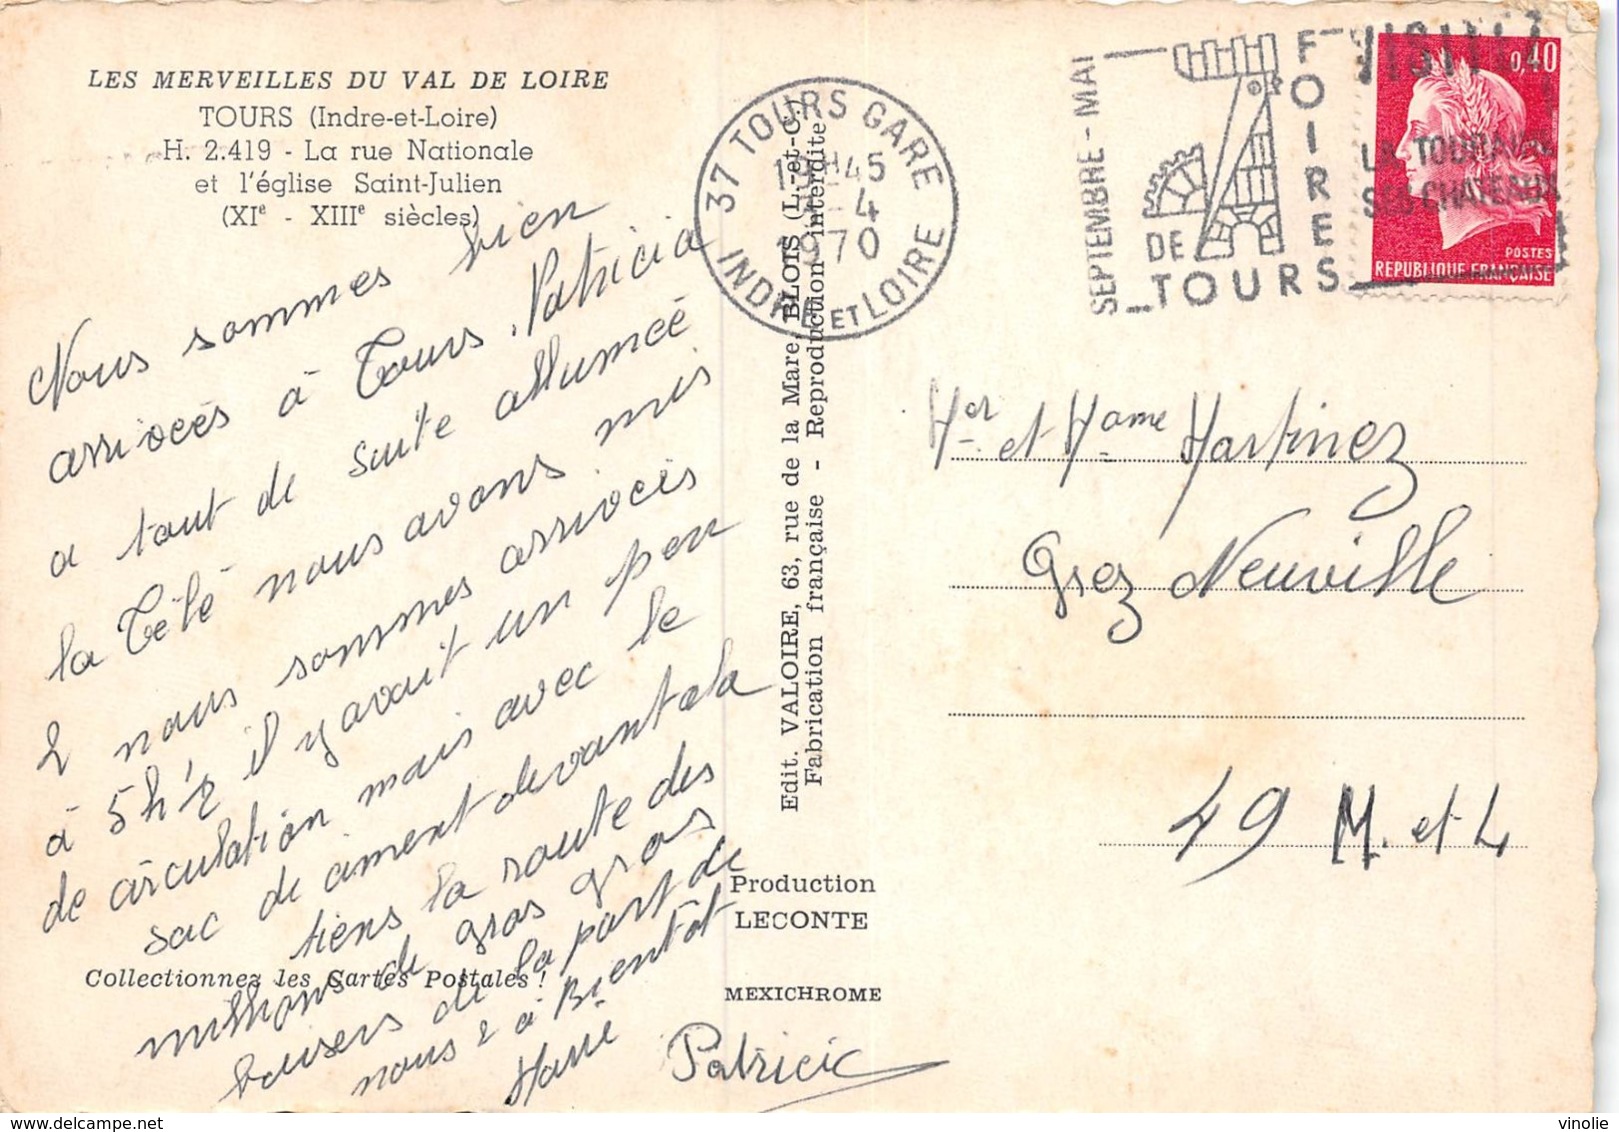 LES MERVEILLES DU VAL DE LOIRE
TOURS (Indre-et-Loire)
H. 2.419 - La rue Nationale
et l'église Saint-Julien
(XIe - XIIIe siècles)
Nous sommes bien
arrivées à Tours. Patricia
a tout de suite allumée
la Télé nous avons mis
2 nous sommes arrivées
à 5h1/2 il y avait un peu
de circulation mais avec le
sac de ament devant la
tiens la route des
millions de gros gros
baisers de la part de
nous 2 à Bientôt
Patricia
Collectionnez les Cartes Postales !
37 TOURS GARE
INDRE ET LOIRE
H45
-4
1970
Edit. VALOIRE, 63, rue de la Mare, BLOIS (L.-et-C.)
Fabrication française - Reproduction interdite
Production
LECONTE
MEXICHROME
SEPTEMBRE - MAI
FOIRES
DE
TOURS
VISITEZ
LA TOURAINE
SES CHATEAUX
0,40
POSTES
REPUBLIQUE FRANÇAISE
Mer et Mame Martinez
Grez Neuville
49 M. et L
delcampe.net
vinolie